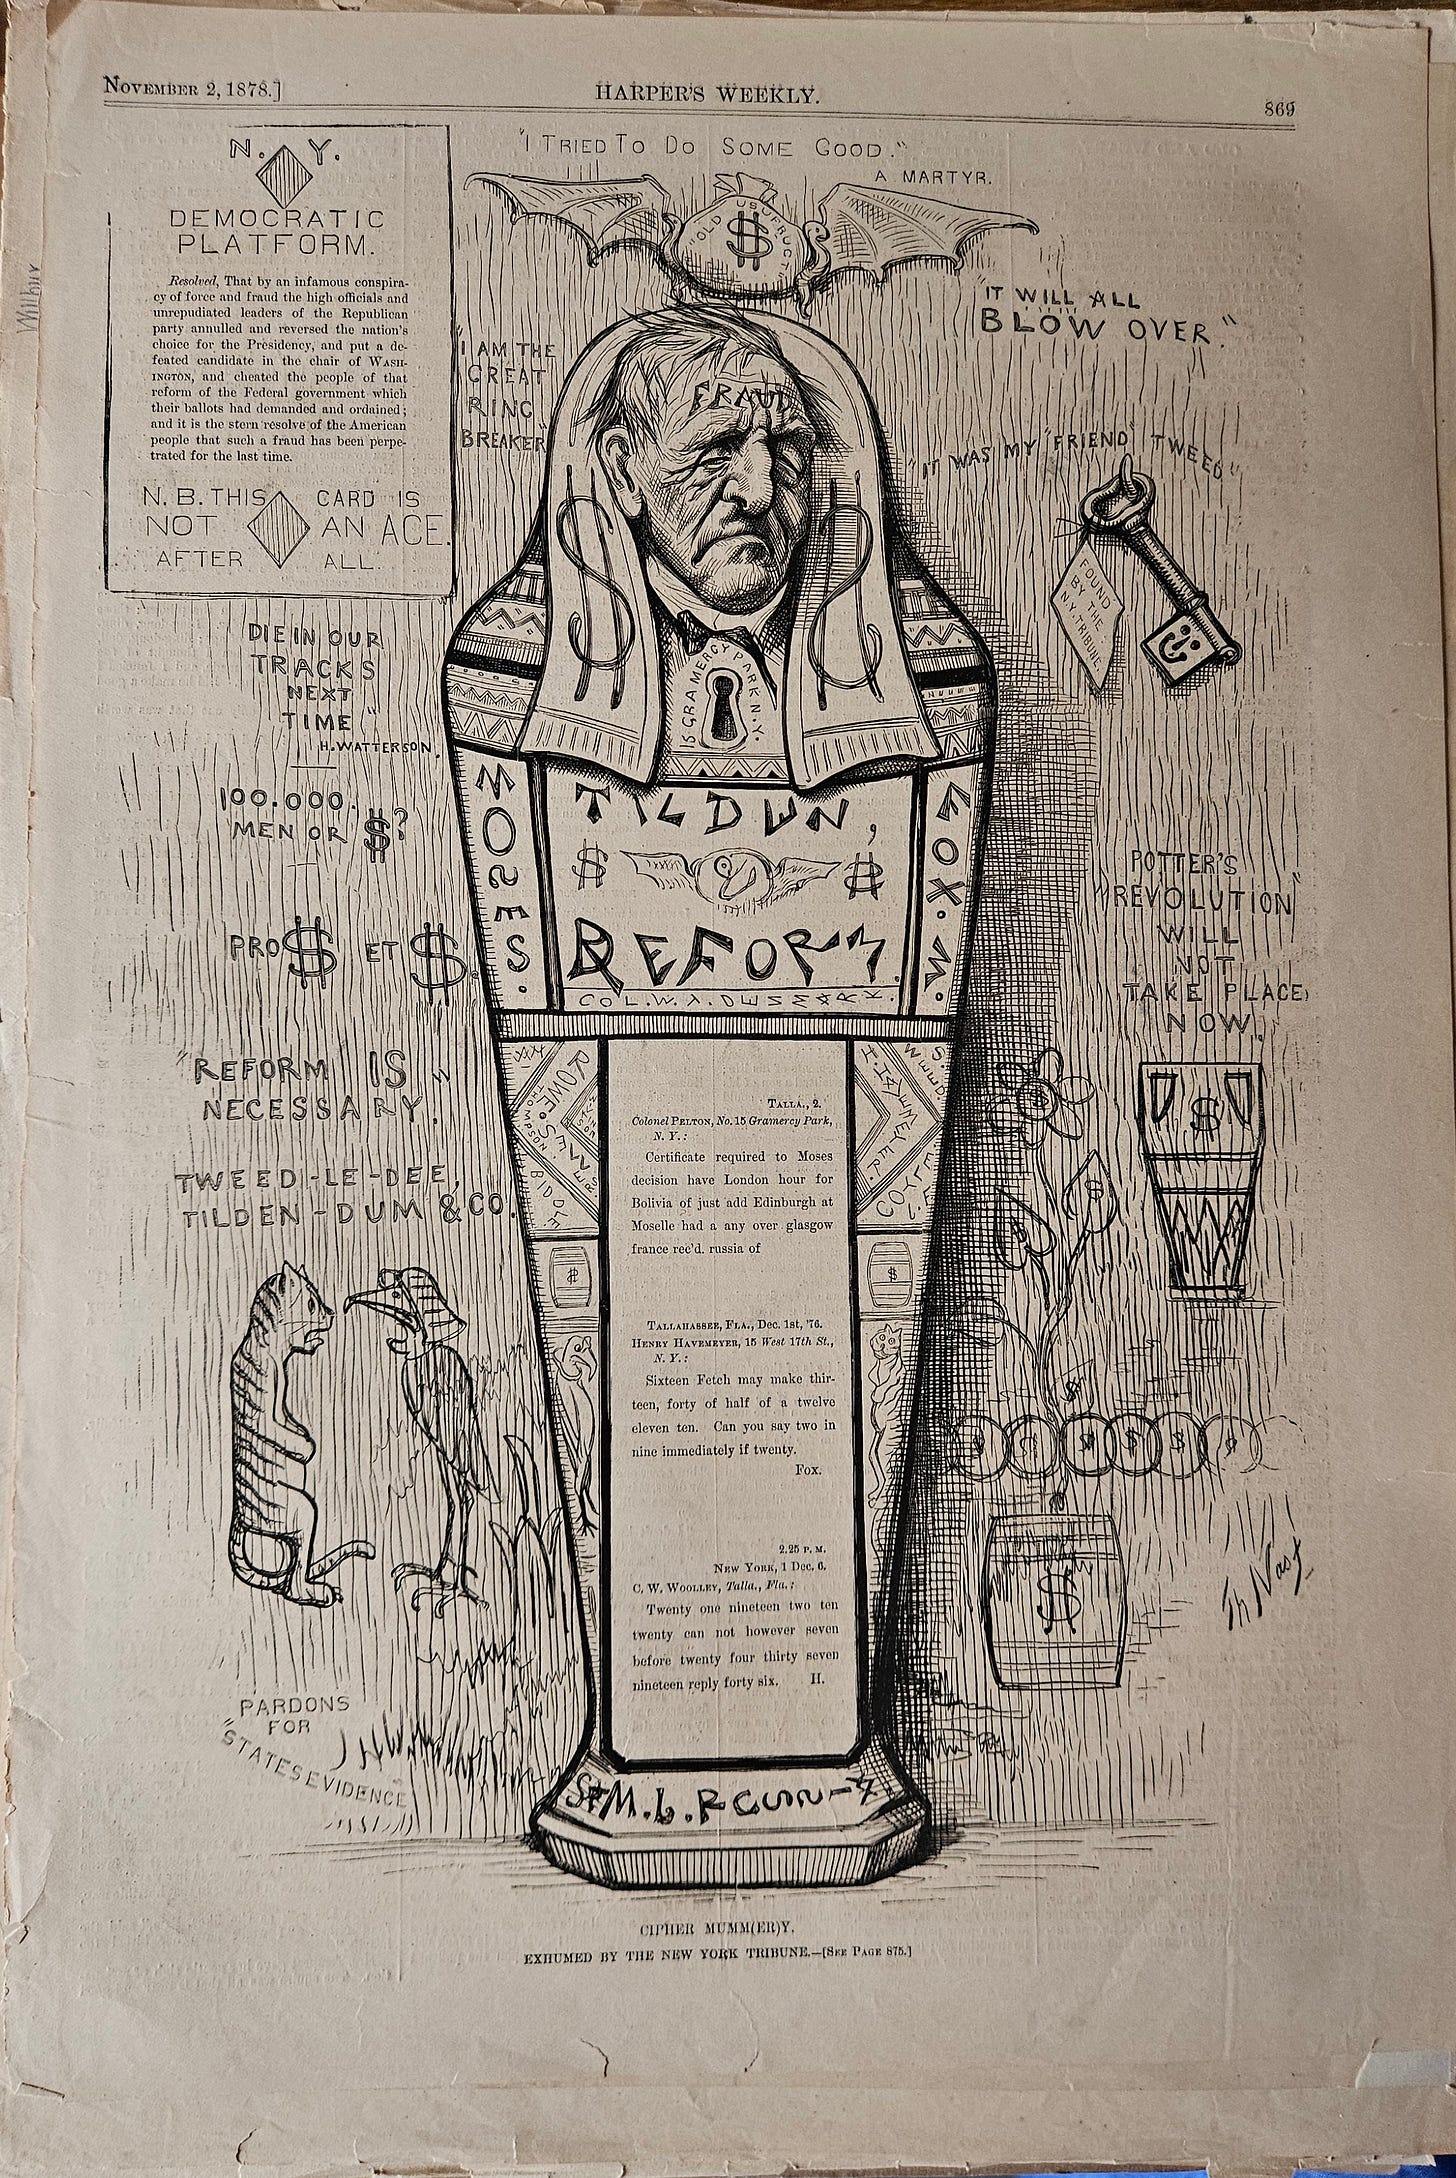 NOVEMBER 2, 1878.]
HARPER'S WEEKLY.
869
N. Y.
DEMOCRATIC
PLATFORM.
Resolved, That by an infamous conspira-
cy of force and fraud the high officials and
unrepudiated leaders of the Republican
party annulled and reversed the nation's
choice for the Presidency, and put a de-
feated candidate in the chair of WASH-
INGTON, and cheated the people of that
reform of the Federal government which
their ballots had demanded and ordained;
and it is the stern resolve of the American
people that such a fraud has been perpe-
trated for the last time.
N. B. THIS CARD IS
NOT AN ACE
AFTER ALL.
"I TRIED TO DO SOME GOOD."
A MARTYR.
"OLD USUFRUCT"
$
"IT WILL ALL
BLOW OVER."
"I AM THE
GREAT
RING
BREAKER"
FRAUD
"IT WAS MY "FRIEND" TWEED"
FOUND
BY THE
N.Y. TRIBUNE
DIE IN OUR
TRACKS
NEXT
TIME"
H. WATTERSON.
15 GRAMERCY PARK N.Y.
100.000.
MEN OR $?
PRO $ ET $
"REFORM IS
NECESSARY."
TWEED-LE-DEE,
TILDEN-DUM & CO.
MOSES.
TILDEN,
$ $
REFORM.
FOX. W.
POTTER'S
"REVOLUTION"
WILL
NOT
TAKE PLACE
NOW.
ROWE.
THOMPSON
BIDDLE
SPEED
HAVEMEYER.
COYLE.
TALLA., 2.
Colonel PELTON, No. 15 Gramercy Park,
N. Y.:
Certificate required to Moses
decision have London hour for
Bolivia of just add Edinburgh at
Moselle had a any over glasgow
france rec'd. russia of
TALLAHASSEE, FLA., Dec. 1st, '76.
HENRY HAVEMEYER, 15 West 17th St.,
N. Y.:
Sixteen Fetch may make thir-
teen, forty of half of a twelve
eleven ten. Can you say two in
nine immediately if twenty.
FOX.
2.25 P. M.
NEW YORK, 1 Dec. 6.
C. W. WOOLLEY, Talla., Fla.:
Twenty one nineteen two ten
twenty can not however seven
before twenty four thirty seven
nineteen reply forty six. H.
PARDONS
FOR
"STATES EVIDENCE
Th Nast
CIPHER MUMM(ER)Y.
EXHUMED BY THE NEW YORK TRIBUNE.—[SEE PAGE 875.]